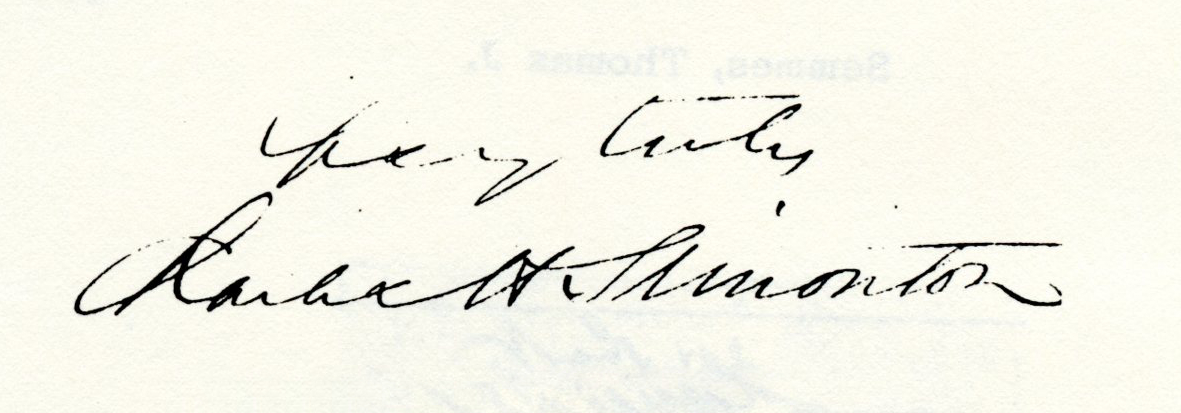 Semmes, Thomas J.
Very truly
Charles H. Simonton